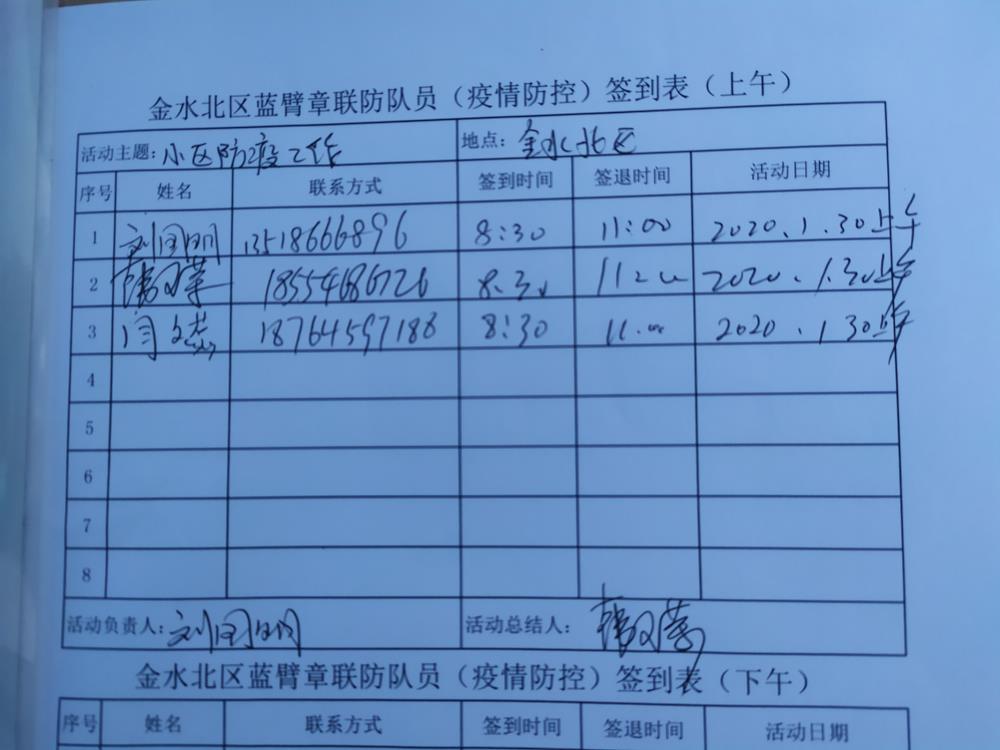 金水北区蓝臂章联防队员（疫情防控）签到表（上午）
活动主题：小区防疫工作 地点：金水北区
序号 姓名 联系方式 签到时间 签退时间 活动日期
1 刘国明 13518666896 8:30 11:00 2020.1.30上午
2 韩 18554686726 8:30 11:00 2020.1.30上午
3 闫杰 18764597188 8:30 11:00 2020.1.30上午
4
5
6
7
8
活动负责人：刘国明 活动总结人：韩
金水北区蓝臂章联防队员（疫情防控）签到表（下午）
序号 姓名 联系方式 签到时间 签退时间 活动日期